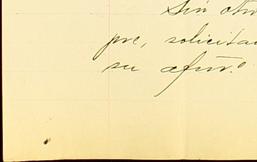 Sin otro
pre, solicitan
su afmo.